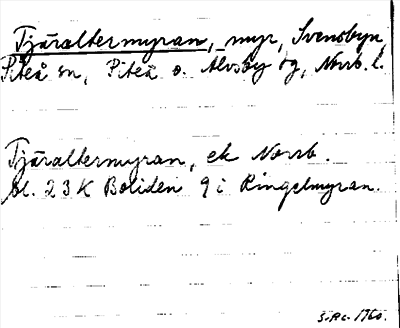 Tjäraltermyran, myr, Svensbyn
Piteå sn, Piteå o. Älvsby tg, Norrb. l.
Tjäraltermyran, ek Norrb.
bl. 23 K Boliden 9 i Ringelmyran.
1960.